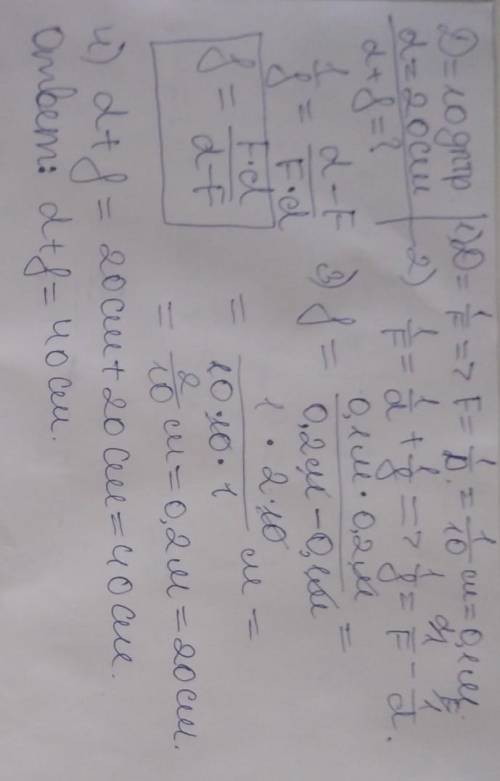 D = 10 дптр
d = 20 см
d + f = ?
1) D = 1/F => F = 1/D = 1/10 м = 0,1 м.
2) 1/F = 1/d + 1/f => 1/f = 1/F - 1/d.
1/f = d - F / F·d
f = F·d / d - F
3) f = 0,1м · 0,2м / 0,2м - 0,1м =
= 1 · 2 · 10 / 10 · 10 · 1 м =
= 2/10 м = 0,2 м = 20 см.
4) d + f = 20 см + 20 см = 40 см.
Ответ: d + f = 40 см.